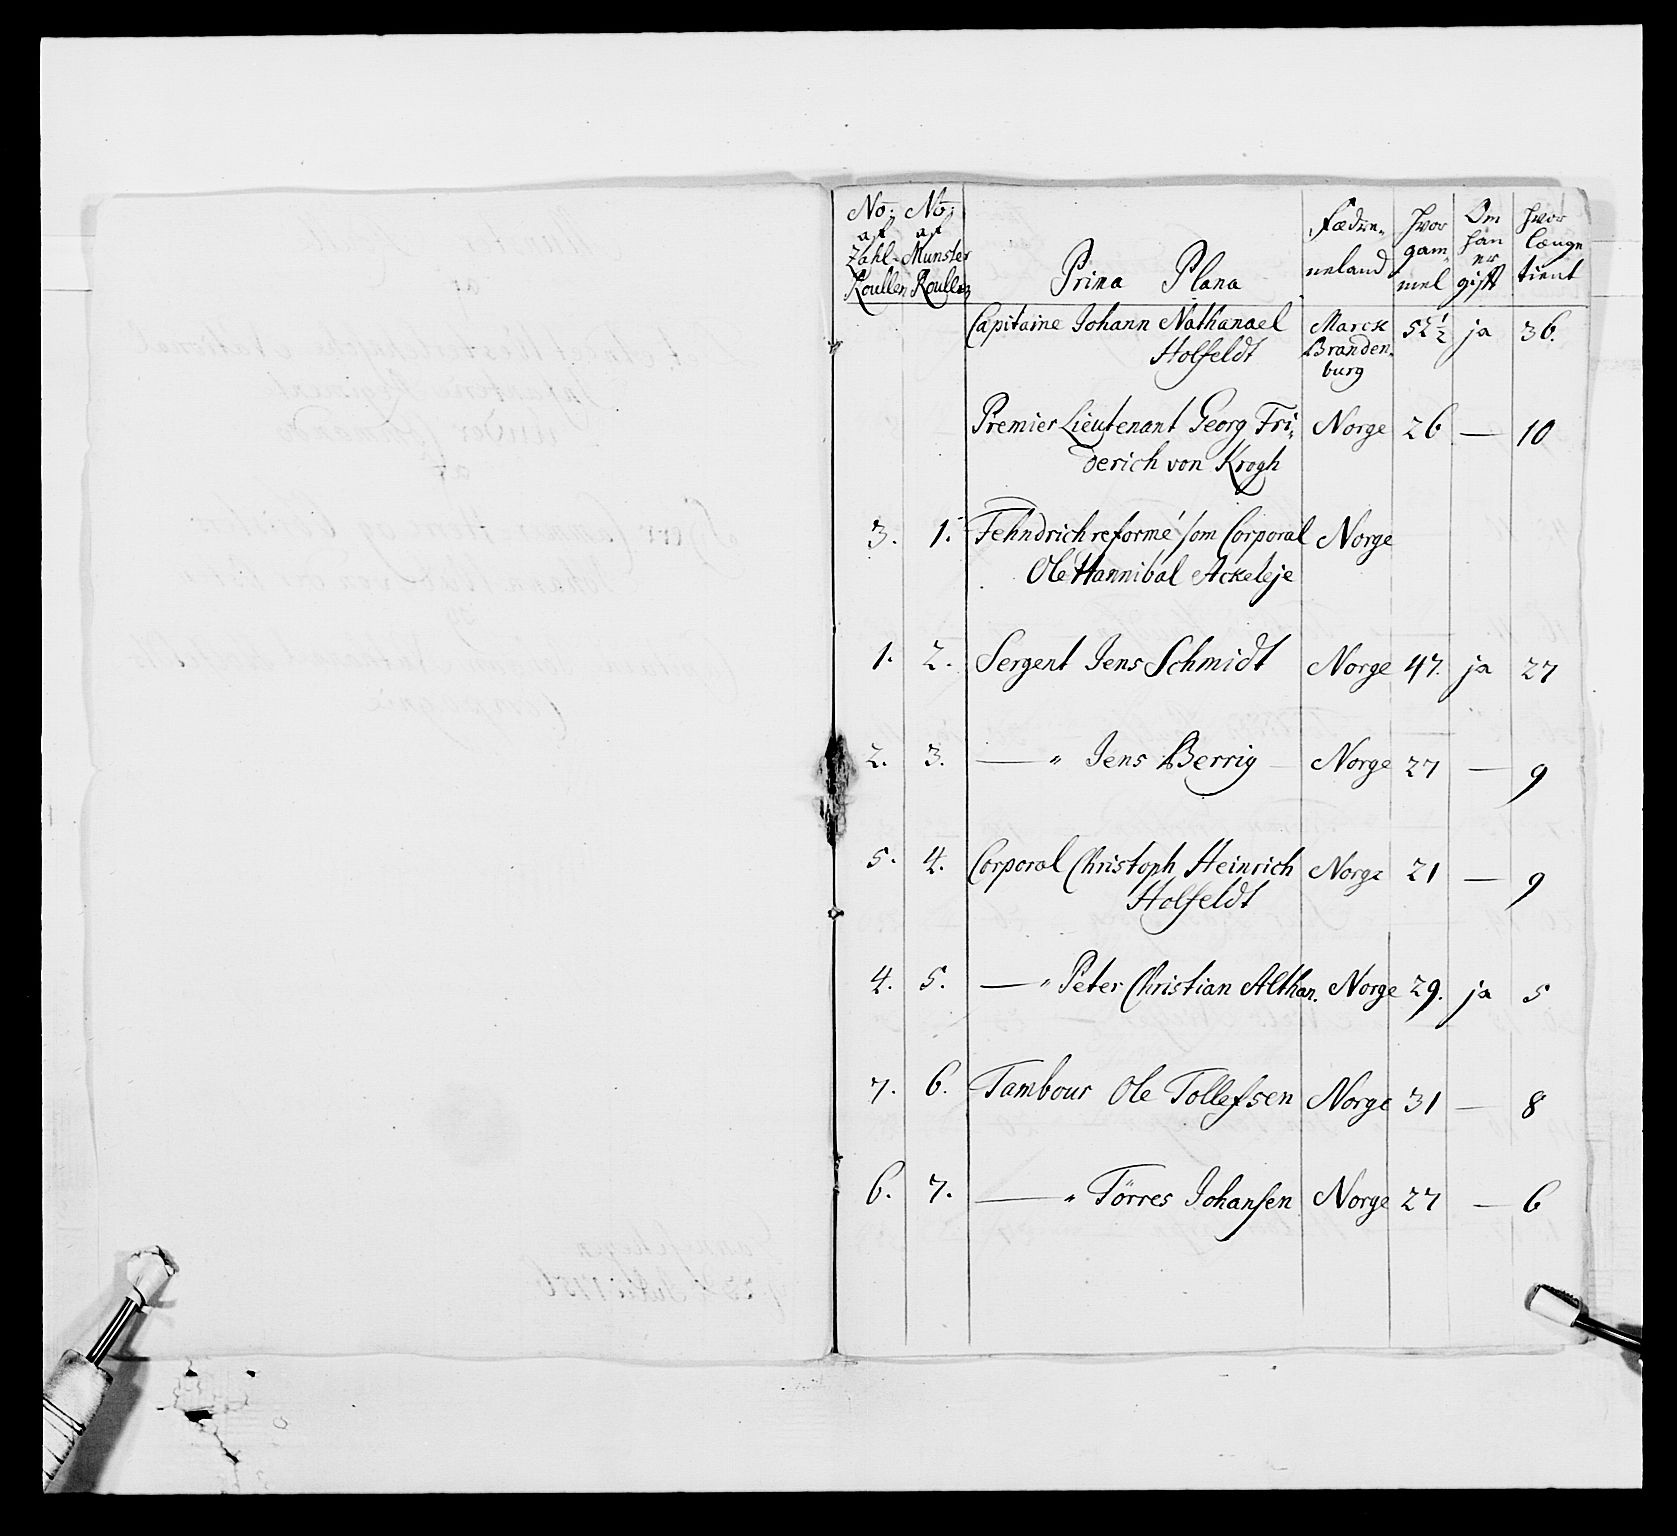 No: No:
af af
Zahl- Munster
Roullen Roullen
Prima Plana
Fædre„
neland
hvor
gam„
mel
Om
han
er
gift
hvor
længe
tient
Capitaine Johann Nathanael Marck 52½ ja 36.
Holfeldt Branden„
burg
Premier Lieutenant Georg Fri„ Norge 26 — 10
derich von Krogh
3. 1. Fehndrich reformé som Corporal Norge
Ole Hannibal Ackeleje
1. 2. Sergent Jens Schmidt Norge 47. ja 27
2. 3. — „ Jens Berrig Norge 27 — 9
5. 4. Corporal Christoph Heinrich Norge 21 — 9
Holfeldt
4. 5. — „ Peter Christian Althan. Norge 29. ja 5
7. 6. Tambour Ole Tollefsen Norge 31 — 8
6. 7. — „ Törres Johansen Norge 27 — 6